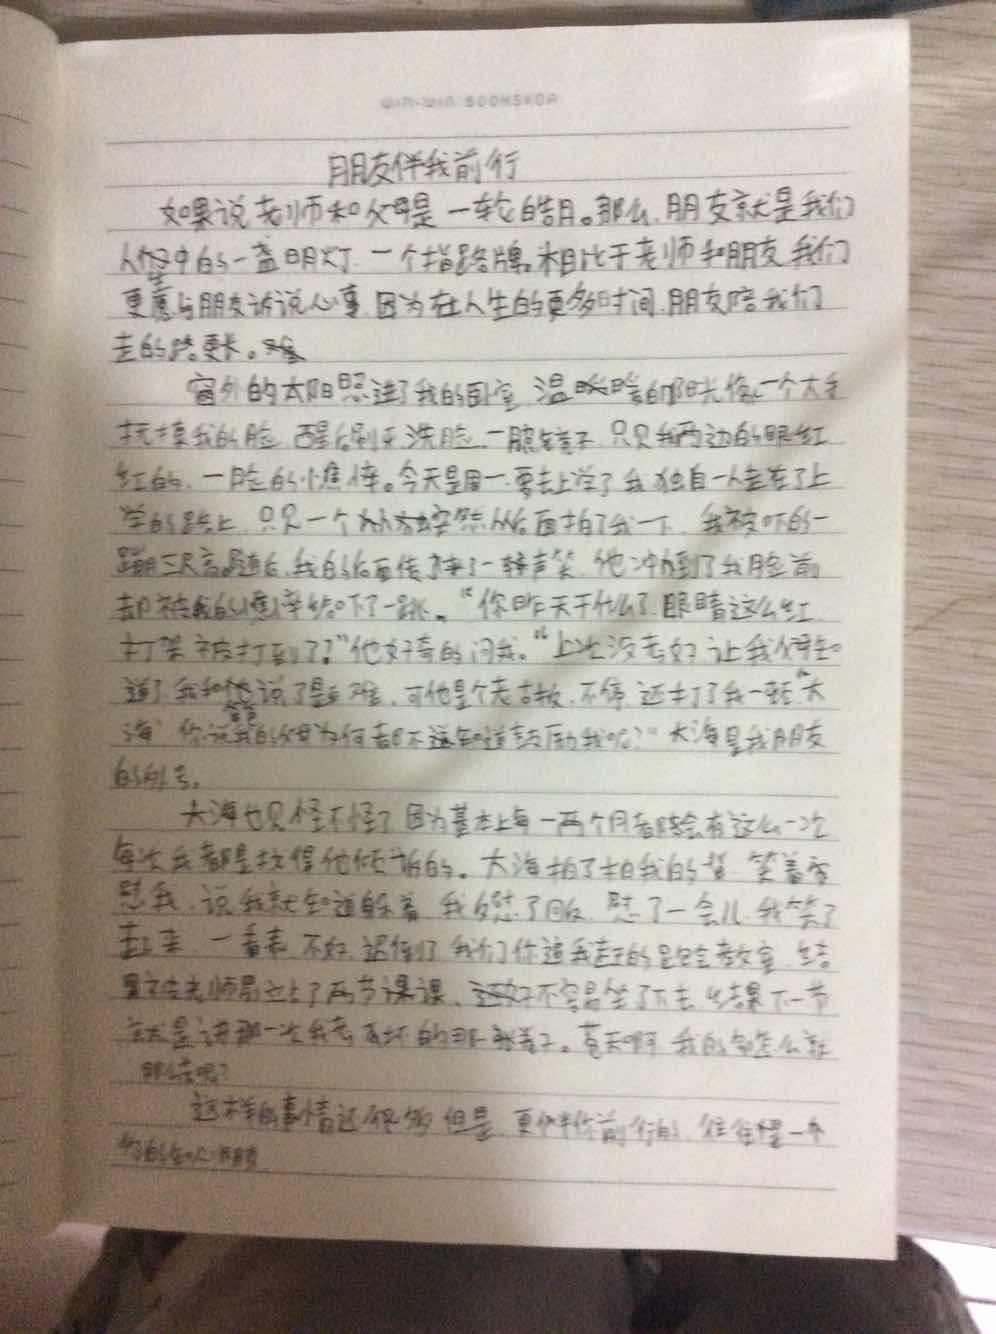 WIN-WIN BOOKSHOP
朋友伴我前行
如果说老师和父母是一轮皓月。那么,朋友就是我们
人生中的一盏明灯,一个指路牌。相比于老师和朋友,我们
更愿与朋友诉说心事,因为在人生的更多时间,朋友陪我们
走的路更长。
窗外的太阳照进了我的卧室,温暖的阳光像一个大手
抚摸我的脸,醒后刷牙洗脸,一照镜子,只见我两边的眼红
红的,一脸的憔悴。今天是周一,要去上学了,我独自一人走在了上
学的路上,只见一个人突然从后面拍了我一下,我被吓的一
蹦三尺高,随后,我的后面传来了一阵声笑,他冲到了我脸前
却被我的憔悴给吓了一跳。"你昨天干什么了,眼睛这么红,
打架被打到了?"他好奇的问我。"上次没考好,让我父母知
道了,我和他说了是题难,可他是个老古板,不停,还打了我一顿"大
海,你说我的父母为何都不知道鼓励我呢?"大海是我朋友
的外号。
大海也见怪不怪了,因为基本上每一两个月都会有这么一次
每次我都是找得他倾诉的。大海拍了拍我的背,笑着安
慰我,说我就知道躲着,我
慰了一会儿,我笑了
起来,一看表,不好,迟到了,我们你追我赶的跑到教室,结
果被老师
上了两节课,
好不容易坐了下去,结果下一节
就是讲那一次我考
的那张卷子。苍天啊,我的命怎么就
那么苦呢?
这样的事情还很多,但是,更伴你前行的,往往是一个
你的知心朋友